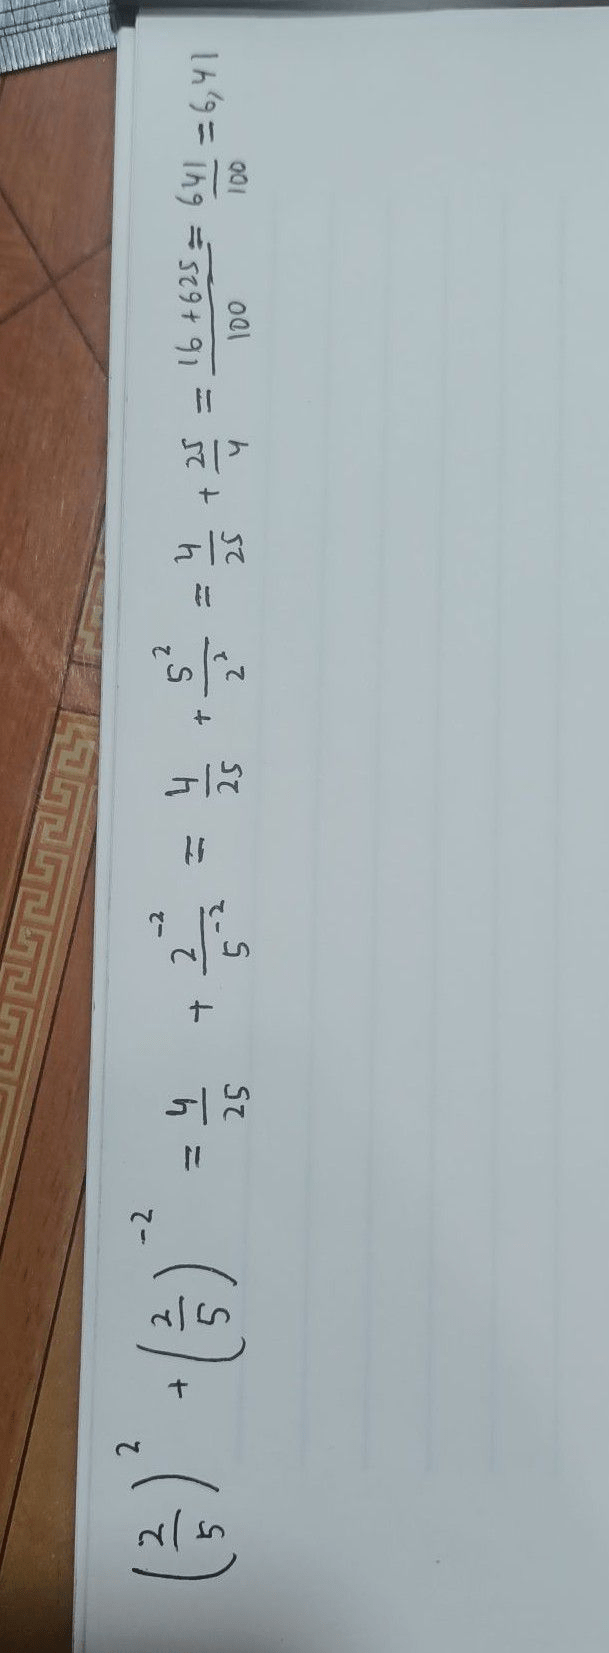 (2/5)² + (2/5)⁻² = 4/25 + 2⁻²/5⁻² = 4/25 + 5²/2² = 4/25 + 25/4 = 16+625/100 = 641/100 = 6,41